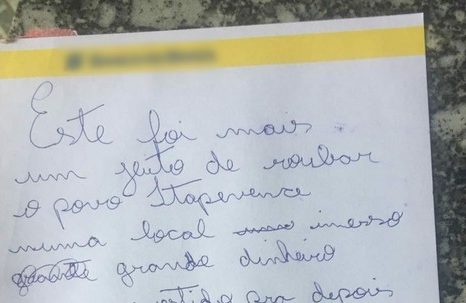 Este foi mais
um jeito de roubar
o povo Itapevence
numa local imerso
grande dinheiro
vestido pra depois